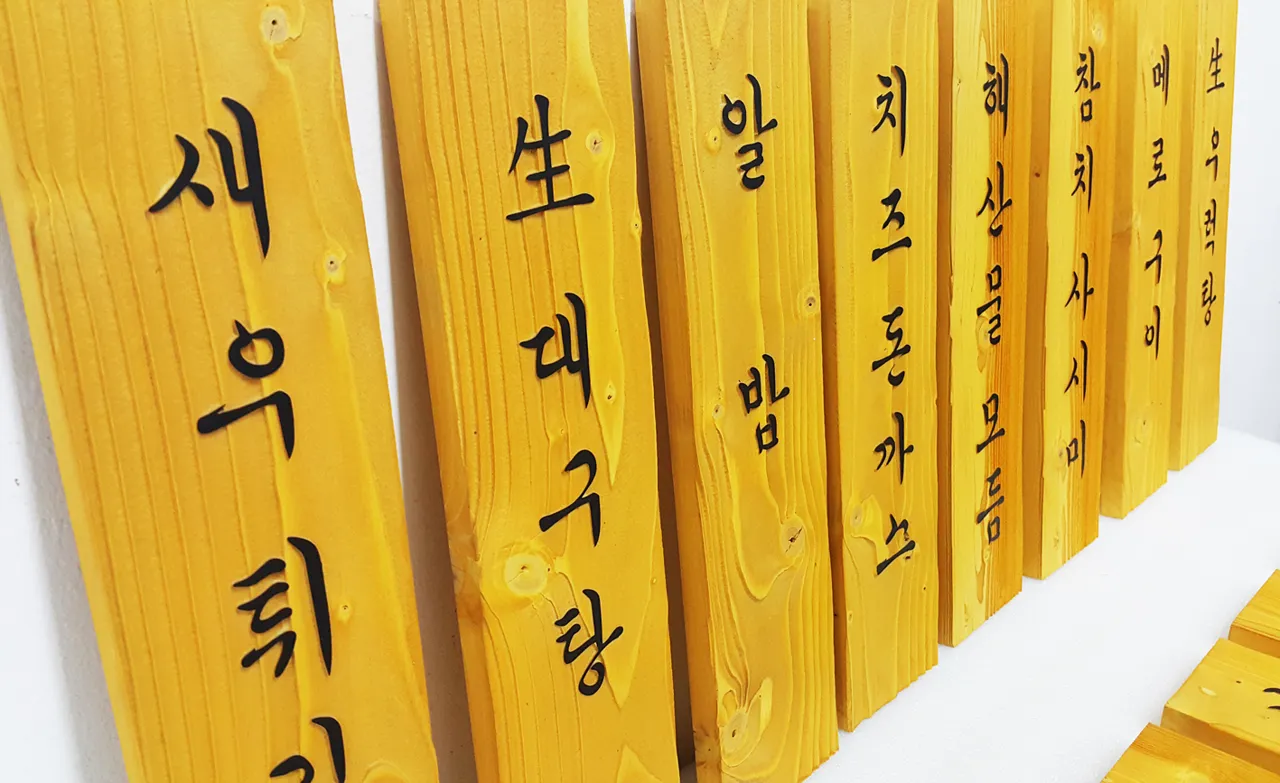 새우튀
生대구탕
알밥
치즈돈까스
해산물모듬
참치사시미
메로구이
生우럭탕